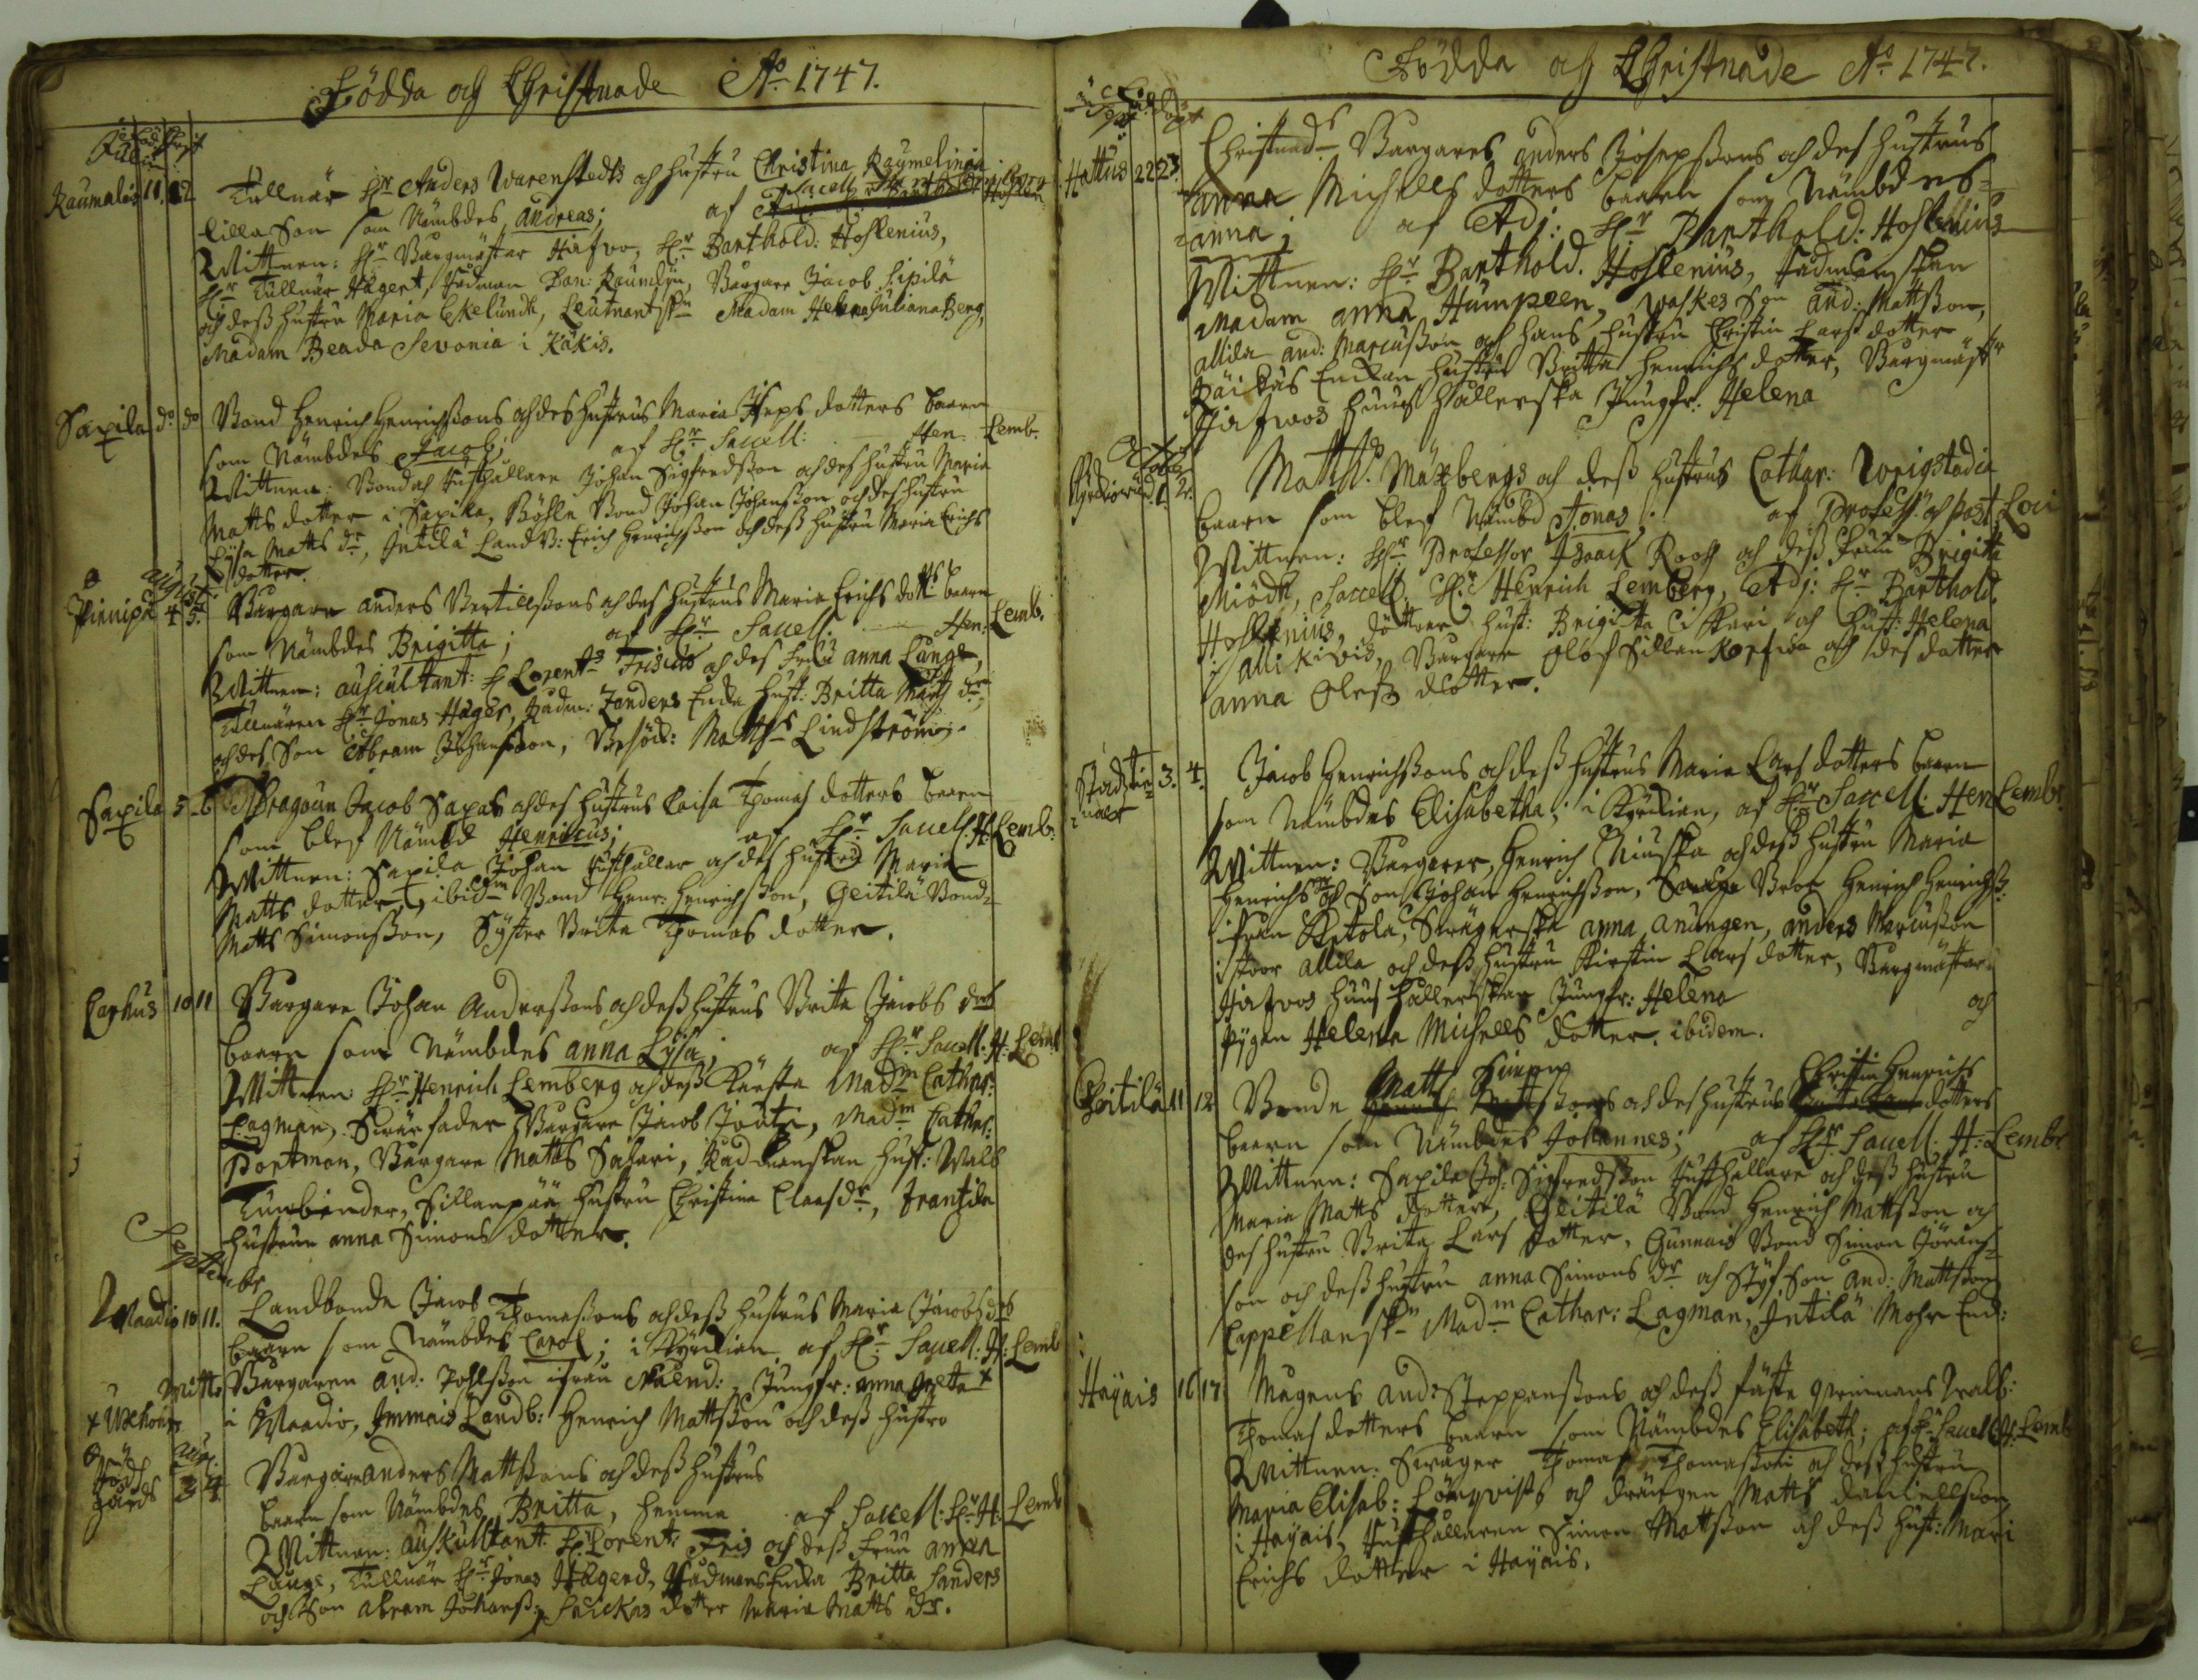 Födda och Christnade Ao 1747.
Raumalais 11. 12. Tullnär Hr Anders Warenstedts och hustru Christina Raumelinia
lilla Son som Nämbdes Andreas; af
Wittnen: Hr Borgmästar Häfwo, Hr Barthold: Hoslenius,
Hr Tullnär Hägert, Rådman Dan: Raumelin, Borgare Jacob Sipilä
och desz hustru Maria Ekelundh, Leutnantskn Madam Helena Juliana Berg,
Madam Beada Sevonia i Käkis.
Saxila do do Bond Henrich Henrichssons och des hustrus Maria Jseps dotters baarn
som Nämbdes Jacob; af Hr Sacell: Hen. Lemb.
Wittnen: Bond och Rusthållare Johan Sigfredsson och des hustru Maria
Matts dotter i Saxila, Böhle Bond Johan Johansson och des hustru
Lysa Matts dr, Intilä Landb: Erich Henrichsson och desz hustru Maria Erichs
dotter.
August.
Pinnipä 4 5. Borgare Anders Bertillssons och des hustrus Maria Erichs dottrs baarn
som Nämbdes Brigitta; af Hr Sacell. Hen: Lemb.
Wittnen: Auscultant: H Lorents Frisius och des Fru Anna Lange,
Tullnären Hr Jonas Häger, Rådm: Sanders Enka hust: Britta Matts dr,
och des Son Abram Johansson, Matths Lindström.
Saxila 5 6 Dragoun Jacob Saxas och des hustrus Caisa Thomas dotters baarn
som blef Nämbd Henricus; af Hr Sacell. H. Lemb:
Wittnen: Saxila Johan Rusthållar och des hustru Maria
Matts dotter, ibidm Bond Henr: Henrichsson, Geitilä Bond
Matts Simonsson, Syster Brita Thomas dotter.
Caphus 10 11 Borgare Johan Anderssons och desz hustrus Brita Jacobs dotr
baarn som Nämbdes Anna Lysa; af Hr Sacell. H: Lemb
Wittnen Hr Henrich Lemberg och desz Kärsta Madm Cathar:
Lagman, Swärfader Borgare Jacob Joutzi, Madm Cathar:
Portman, Borgare Matts Safari, Rådmanskan hust: Walb
Tunbinder, Sillanpää hustru Christina Claesdr, Frantsila
hustrun Anna Simons dotter.
September
Maadio 10 11. Landbonde Jacob Thomassons och desz hustrus Maria Jacobs drs
baarn som Nämbdes Carol; i Kyrkian af Hr Sacell: H: Lemb
Witt: Borgaren And: Pohlsson ifrån Nåend: Jungfr: Anna Greta +
i Maadio, Immais Landb: Henrich Mattsson och desz hustro
Aug.
3 4 Borgare Anders Mattssons och desz hustrus
baarn som Nämbdes Britta, hemma af Sacell: Hr H: Lemb
Wittnen: Auskultant: H: Lorents Fris och desz Fruu Anna
Lange, Tullnär Hr Jonas Hägerd, Rådmans Enka Britta Sanders
och Son Abram Johanss: dotter Maria Matts dr.
Födda och Christnade Ao 1747.
Hattus 22 23. Christnads Borgares Anders Josepssons och des hustrus
Anna Michells dotters baarn som Nämbdes
Anna; af Adj: Hr Barthold: Hoslenius
Wittnen: Hr Barthold. Hoslenius, Rådmanskan
Madam Anna Humpeen, Waskes Son And: Mattsson,
Allila And: Marcusson och hans hustru Christin Larsdotter
Päikäs Enkan hustru Britta Henrichsdotter, Borgmästr
Häfwos huus hållerska Jungfr: Helena
October
1. 2. Matths Maxbergs och desz hustrus Cathar: Wrigstadia
baarn som blef Nämbd Jonas; af Profess: och Past: Loci
Wittnen: Hr Professor Isaack Rooss och desz Fruu Brigitta
Miödh, Sacell. Hr Henrich Lemberg, Adj: Hr Barthold.
Hoslenius, döttrer hust: Brigitta i Kari och hust: Helena
i Allikivis, Borgare Olof Sillan Korfwa och des dotter
Anna Olofs dotter.
3. 4. Jacob Henrichssons och desz hustrus Maria Lars dotters baarn
som Nämbdes Elisabetha; i Kyrkian, af Hr Sacell. Hen Lemb.
Wittnen: Borgarer, Henrich Niuska och desz hustru Maria
Henrichs dr och Son Johan Henrichsson, Bror Henrich Henrichss.
ifrån Ketola, Swägerska Anna Anungen, Anders Marcusson
i stoor Allila och desz hustru Kirstin Lars dotter, Borgmästar
Häfwos huus hållerskan Jungfr: Helena och
Pygan Helena Michells dotter. ibidem.
Geitilä 11 12 Bonde Matts Simons och des hustrus Christin Henrichs dotters
baarn som Nämbdes Johannes; af Hr Sacell. H: Lemb.
Wittnen: Saxila Joh: Sigfredsson Rusthållare och desz hustru
Maria Matts dotter, Geitilä Bond Henrich Mattsson och
des hustru Brita Lars dotter, Gunnais Bond Simon Jörans-
son och desz hustru Anna Simons dr och Styfson And: Mattsson
Cappellanskn Madm Cathar: Lagman, Intilä Mohr End:
Hayais 16 17 Mågens And: Steppanssons och desz fäste qvinnans Walb:
Thomas dotters baarn som Nämbdes Elisabeth; af Hr Sacell H: Lemb
Wittnen: Swåger Thomas Thomasson och desz hustru
Maria Elisab: Lönqvists och drängen Matts Daniellsson
i Hayais, Rusthållaren Simon Mattsson och desz hust: Mari
Erichs dotter i Hayais.